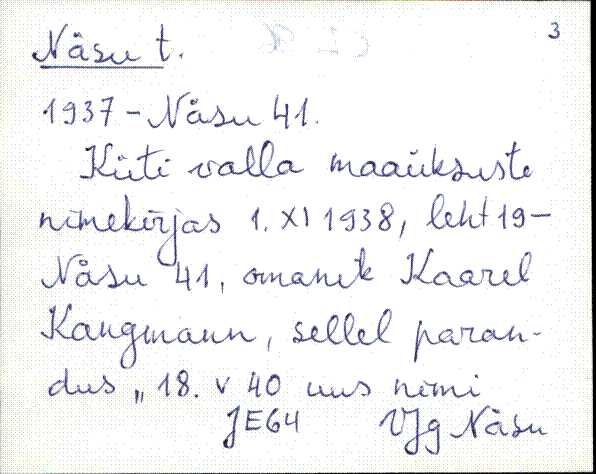 3
Näsu t.
1937 – Näsu 41.
Küti valla maaüksuste
nimekirjas 1. XI 1938, leht 19 –
Näsu 41, omanik Kaarel
Kangmann, sellel paran-
dus „18. V 40 uus nimi
JE64 VJg Näsu